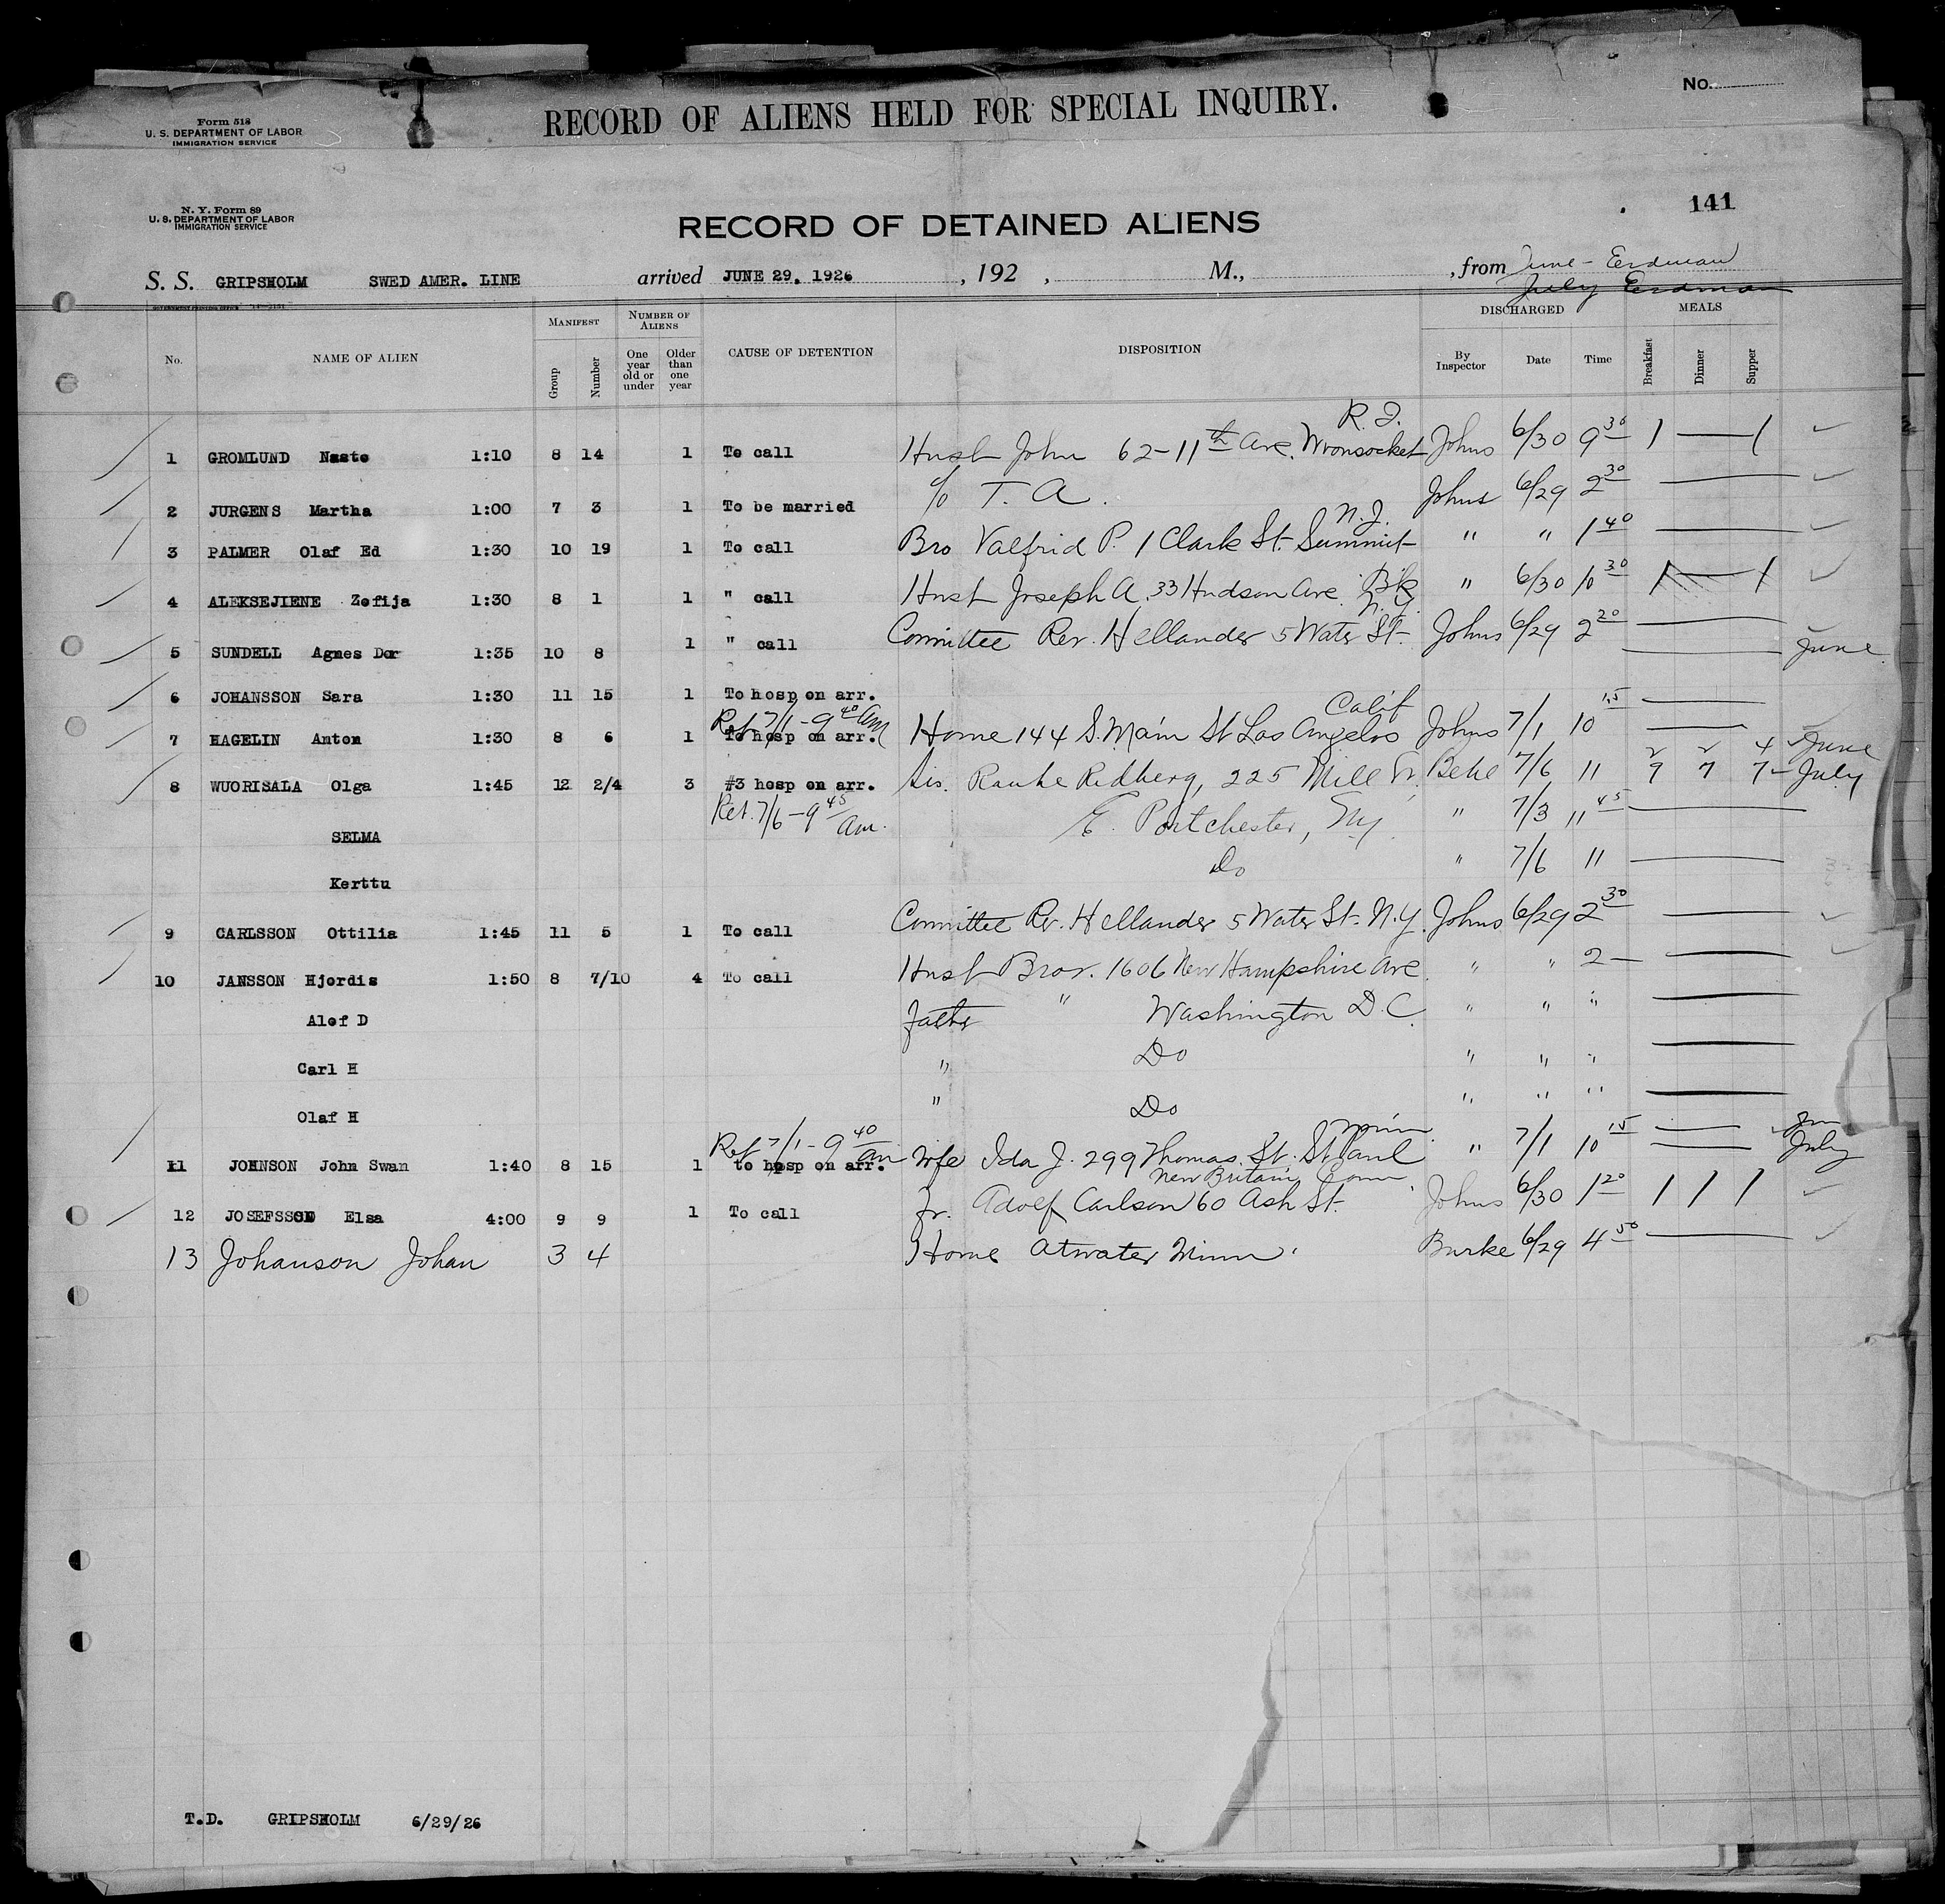 No.
RECORD OF ALIENS HELD FOR SPECIAL INQUIRY.
Form 518
U. S. DEPARTMENT OF LABOR
IMMIGRATION SERVICE
N. Y. Form 89
U. S. DEPARTMENT OF LABOR
IMMIGRATION SERVICE
141
RECORD OF DETAINED ALIENS
S. S. GRIPSHOLM SWED AMER. LINE arrived JUNE 29, 1926 , 192 , M., , from June - Erdman
July Erdman
No. NAME OF ALIEN MANIFEST Group Number NUMBER OF ALIENS One year old or under Older than one year CAUSE OF DETENTION DISPOSITION DISCHARGED By Inspector Date Time MEALS Breakfast Dinner Supper
R. I.
1 GROMLUND Naste 1:10 8 14 1 To call Husb John 62-11th Ave. Woonsocket Johns 6/30 9 30 1 — 1
2 JURGENS Martha 1:00 7 3 1 To be married c/o T. A. Johns 6/29 2 30
N. J.
3 PALMER Olaf Ed 1:30 10 19 1 To call Bro Valfrid P. 1 Clark St. Summit " " 1 40
4 ALEKSEJIENE Zofija 1:30 8 1 1 " call Husb Joseph A. 33 Hudson Ave. Bk " 6/30 10 30 1 — 1
N. Y.
5 SUNDELL Agnes Dor 1:35 10 8 1 " call Committee Rev. Hellander 5 Water St. Johns 6/29 2 20
June
6 JOHANSSON Sara 1:30 11 15 1 To hosp on arr.
Ret 7/1 - 9 40 AM Calif
7 HAGELIN Anton 1:30 8 6 1 To hosp on arr. Home 144 S. Main St Los Angelos Johns 7/1 10 15
2 2 4 June
8 WUORISALA Olga 1:45 12 2/4 3 #3 hosp on arr. Sis. Rauhe Ridberg, 225 Mill St. 7/6 11 9 7 7 - July
Ret. 7/6 - 9 45 am.
SELMA E. Portchester, NY " 7/3 11 45
Kerttu Do " 7/6 11
9 CARLSSON Ottilia 1:45 11 5 1 To call Committee Rv. Hellander 5 Water St. N.Y. Johns 6/29 2 30
10 JANSSON Hjordis 1:50 8 7/10 4 To call Husb Bror. 1606 New Hampshire Ave " " 2 —
Alof D Father " Washington D.C. " " "
Carl H " Do " " "
Olaf H " Do " " "
Ret 7/1 - 9 40 am Minn. Jun
11 JOHNSON John Swan 1:40 8 15 1 to hosp on arr. Wife Ida J. 299 Thomas St. St Paul " 7/1 10 15 July
New Britain, Conn
12 JOSEFSSON Elsa 4:00 9 9 1 To call Fr. Adolf Carlson 60 Ash St. Johns 6/30 1 20 1 1 1
13 Johanson Johan 3 4 Home Atwater Minn. Burke 6/29 4 50
T.D. GRIPSHOLM 6/29/26